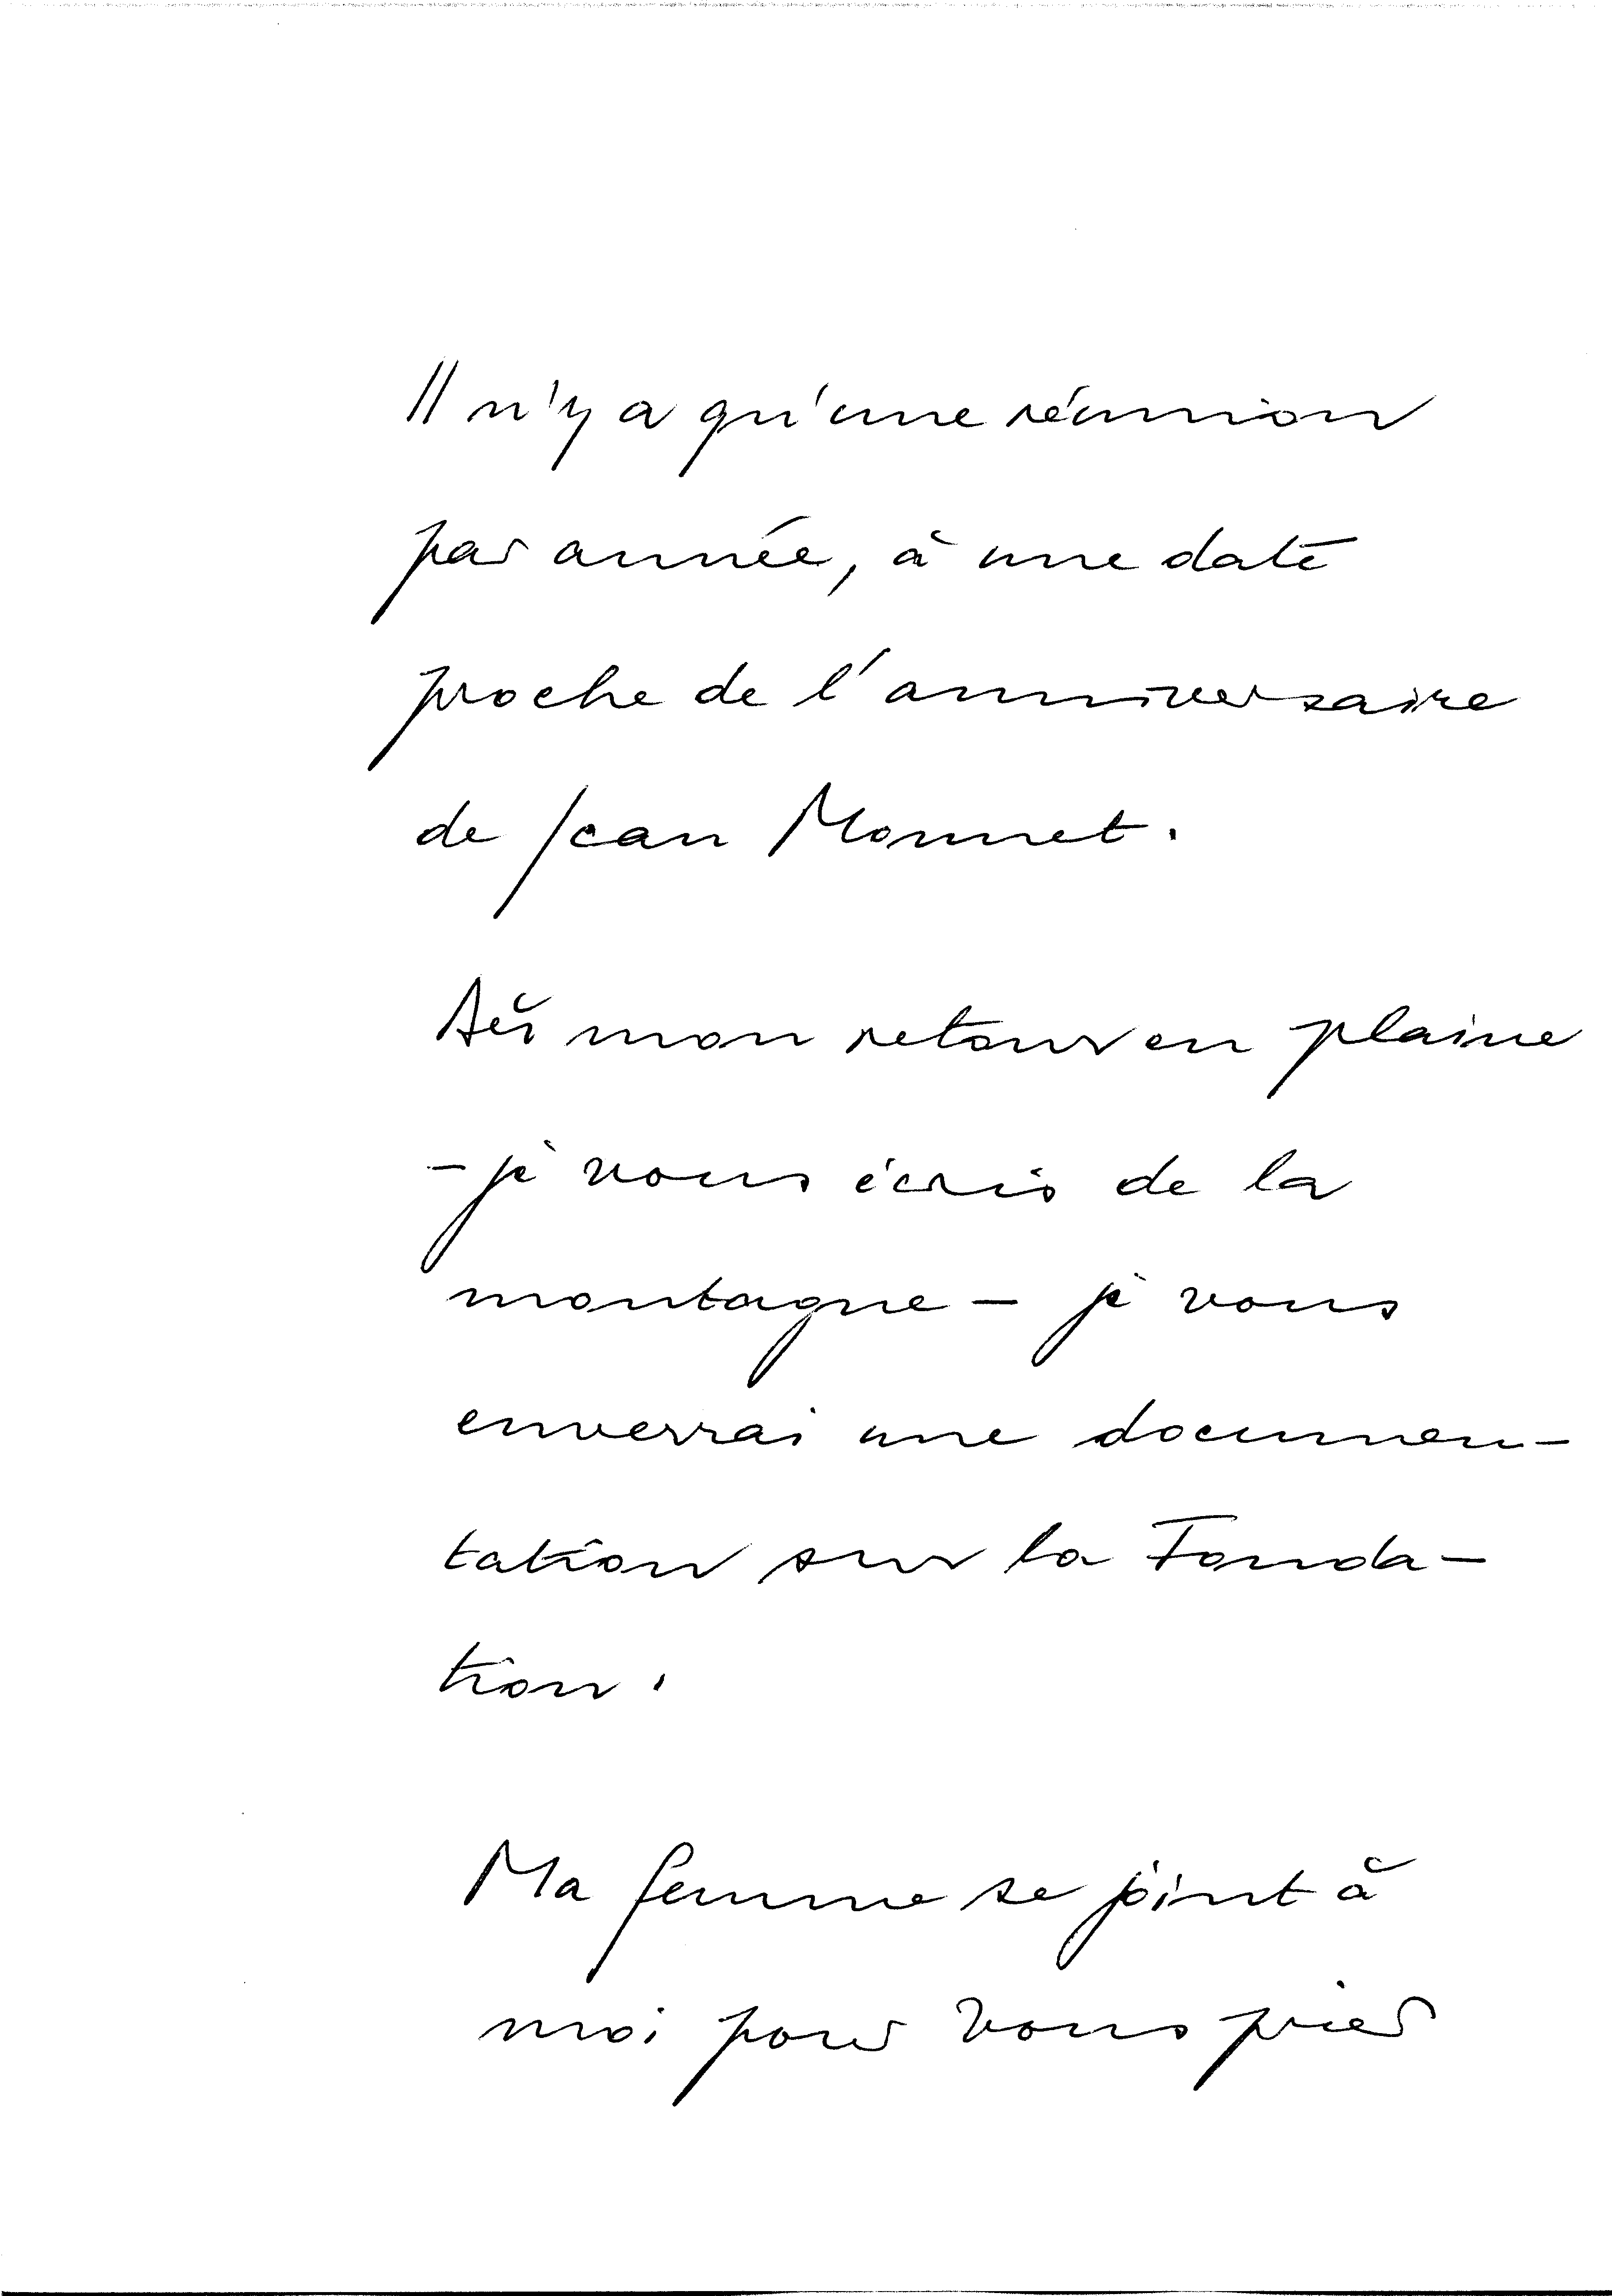 Il n'y a qu'une réunion
par année, à une date
proche de l'anniversaire
de Jean Monnet.
Dès mon retour en plaine
– je vous écris de la
montagne – je vous
enverrai une documen-
tation sur la Fonda-
tion.
Ma femme se joint à
moi pour vous prier